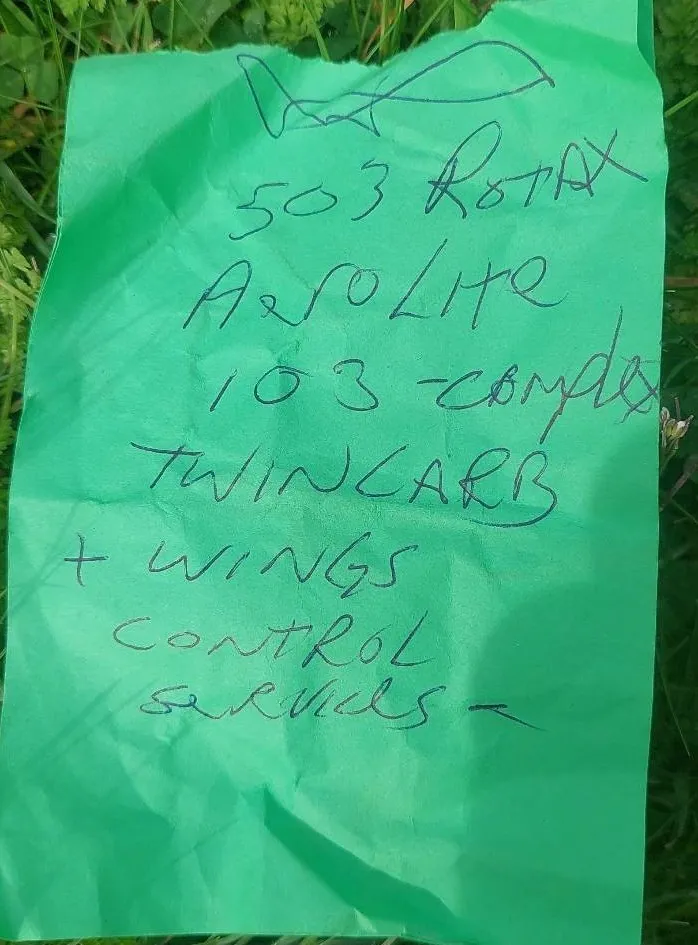 503 ROTAX
AeroLITe
103 - complex
TWINCARB
+ WINGS
CONTROL
SeRVICes -